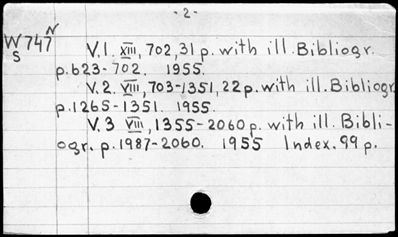 -2-
N
W 747 V.1. XIII, 702, 31 p. with ill. Bibliogr.
S
p. 623-702. 1955.
V.2. VIII, 703-1351, 22 p. with ill. Bibliogr.
p. 1265-1351. 1955.
V.3 VIII, 1355-2060 p. with ill. Bibli-
ogr. p. 1987-2060. 1955 Index. 99 p.